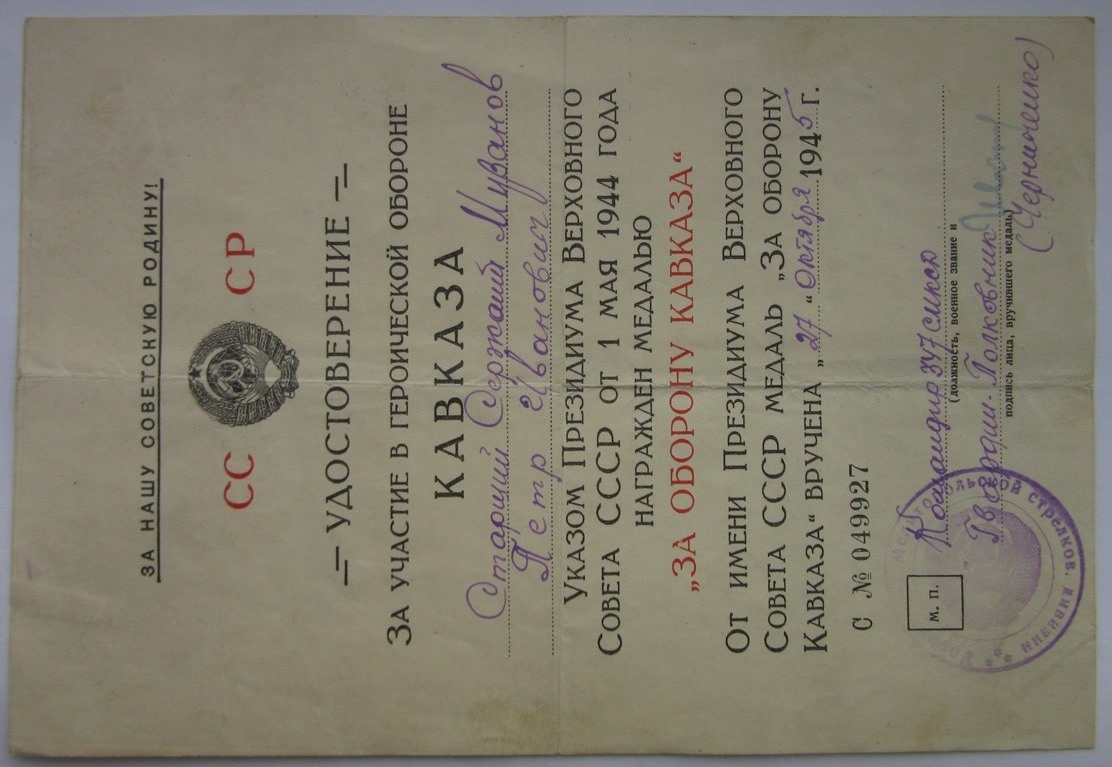 ЗА НАШУ СОВЕТСКУЮ РОДИНУ!
СС СР
УДОСТОВЕРЕНИЕ
ЗА УЧАСТИЕ В ГЕРОИЧЕСКОЙ ОБОРОНЕ
КАВКАЗА
Старший Сержант Мизанов
Петр Иванович
УКАЗОМ ПРЕЗИДИУМА ВЕРХОВНОГО
СОВЕТА СССР ОТ 1 МАЯ 1944 ГОДА
НАГРАЖДЕН МЕДАЛЬЮ
„ЗА ОБОРОНУ КАВКАЗА“
ОТ ИМЕНИ ПРЕЗИДИУМА ВЕРХОВНОГО
СОВЕТА СССР МЕДАЛЬ „ЗА ОБОРОНУ
КАВКАЗА“ ВРУЧЕНА „27“ Октября 1945 Г.
С № 049927
Командир 347
(должность, военное звание и
м. п.
Гвардии-Полковник
подпись лица, вручившего медаль)
(Черниченко)
Мелитопольской стрелков. дивизии